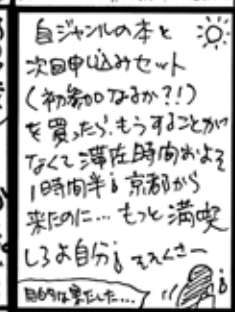 自ジャンルの本と
次回申し込みセット
(初参加なるか?!)
を買ったら、もうすることが
なくて滞在時間およそ
1時間半! 京都から
来たのに…もっと満喫
しろよ自分!
目的は果たした…